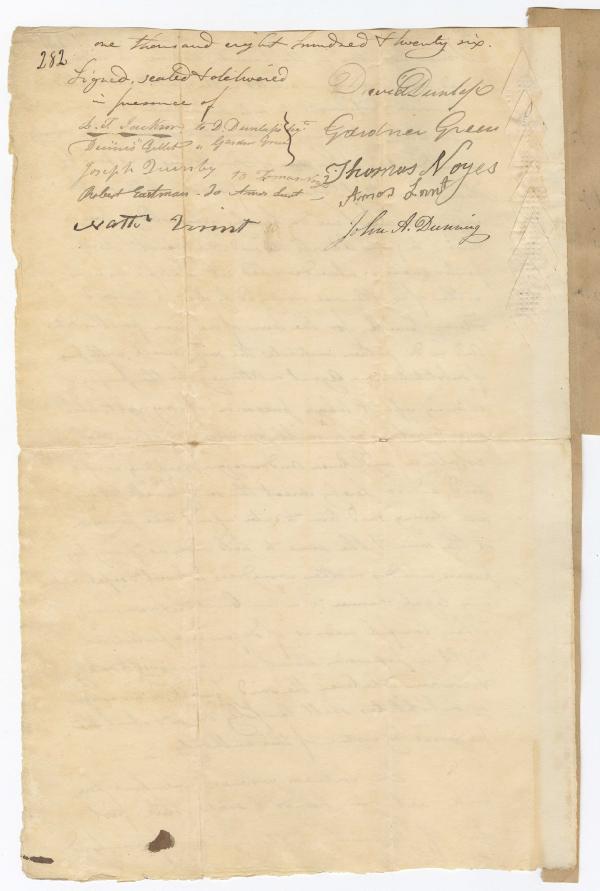 282
one thousand eight hundred & twenty six.
Signed, sealed & delivered
in presence of
Jackson to D Dunlap
Dennis Gillet " Gardner Green
Joseph Dunnby to Thomas Noyes
Robert Eastman - to Amos Lunt -
Nathl Vint
David Dunlap
Gardner Green
Thomas Noyes
Amos Lunt
John A. Dunning